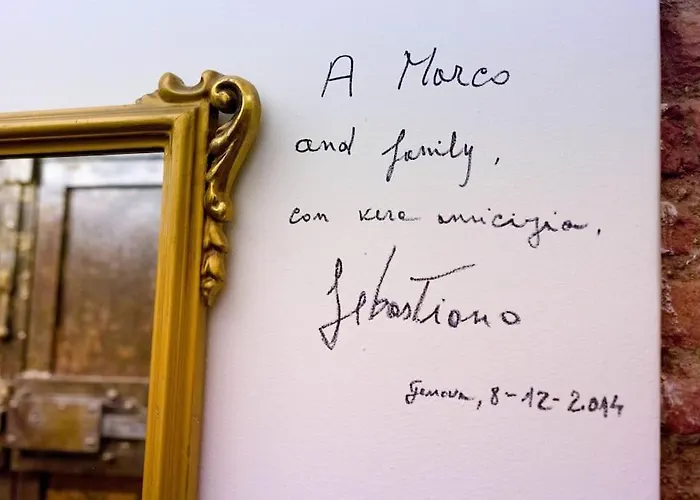 A Marco
and family,
con vera amicizia,
Sebastiano
Genova, 8-12-2014